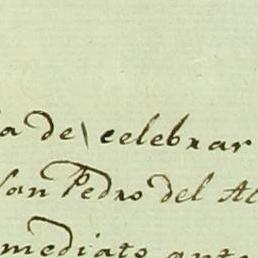 a de celebrar
San Pedro del Al
mediato ante